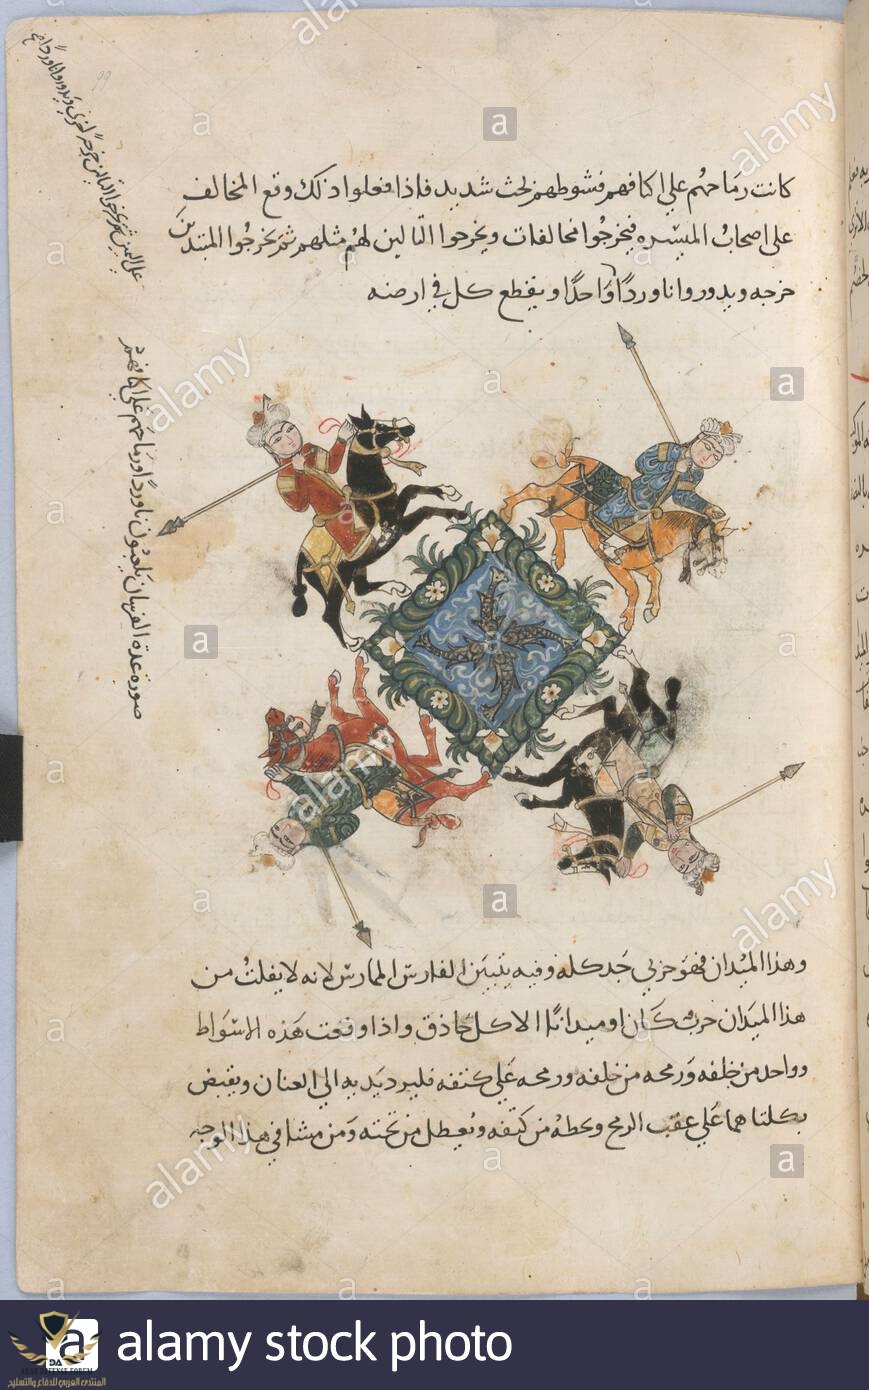 كانت رماحهم علي اكتافهم فشوطهم لحث شديد فاذا فعلوا ذلك وقع المخالف
علي اصحاب الميسره فيخرجوا مخالفات ويخرجوا التالين لهم مثلهم ثم يخرجوا المبتدين
خرجه ويدوروا ناوردًا واحدًا ويقطع كل في ارضه
صورة عدة الفرسان يلعبون ناوردا ورماحهم علي اكتافهم
وهذا الميدان فهو حربي جد كله وفيه يتبين الفارس الممارس لانه لا يفلت من
هذا الميدان حرب كان او ميدانًا الا كل حاذق واذا وقعت هذه الاسواط
وواحد من خلفه ورمحه من خلفه ورمحه علي كتفه فليرد يديه الي العنان ويقبض
بكلتاهما علي عقب الرمح ويحطه من كتفه ويعطل من تحته ومن مشا في هذا الوجه
alamy
alamy stock photo
ARAB DEFENSE FORUM
المنتدى العربي للدفاع والتسليح